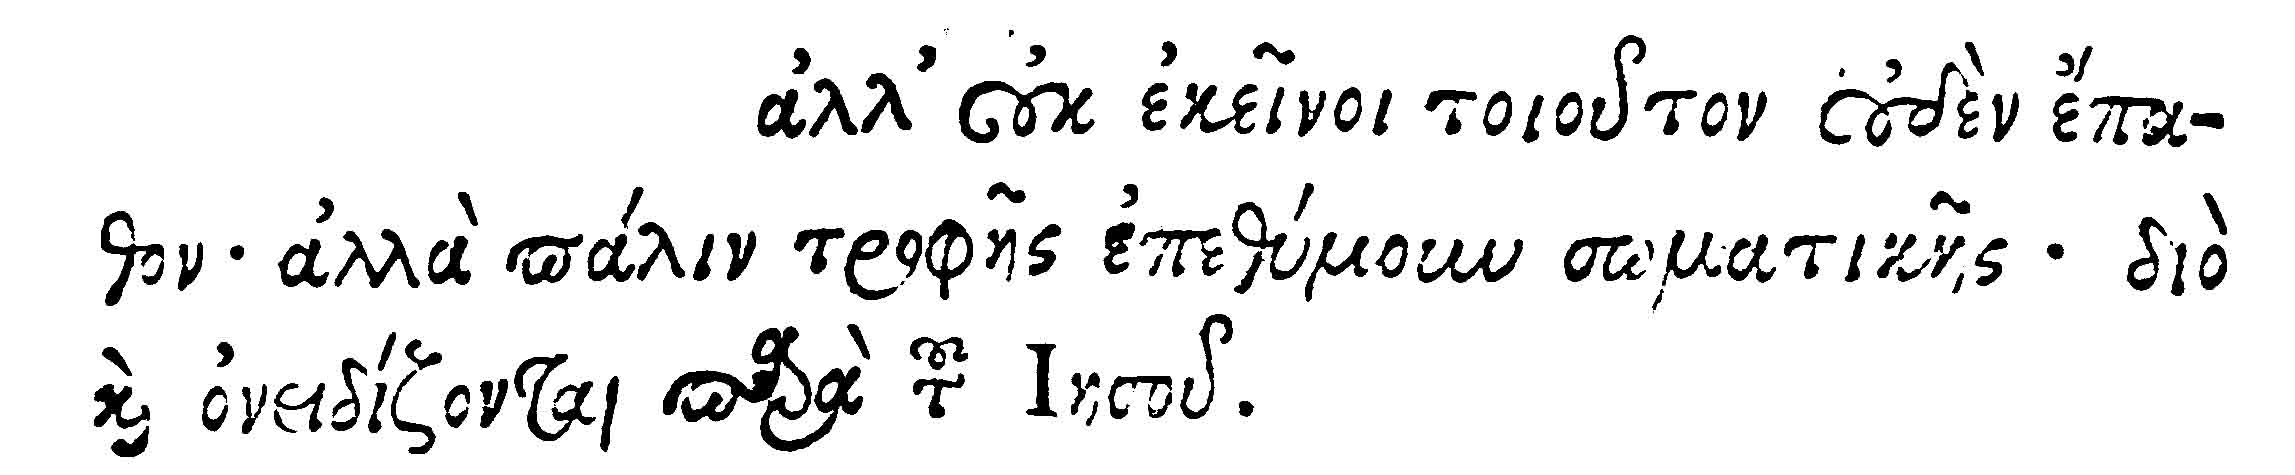 ἀλλ’ οὐκ ἐκεῖνοι τοιοῦτον οὐδὲν ἔπα-
θον· ἀλλὰ πάλιν τροφῆς ἐπεθύμουν σωματικῆς· διὸ
καὶ ὀνειδίζονται παρὰ τοῦ Ἰησοῦ.